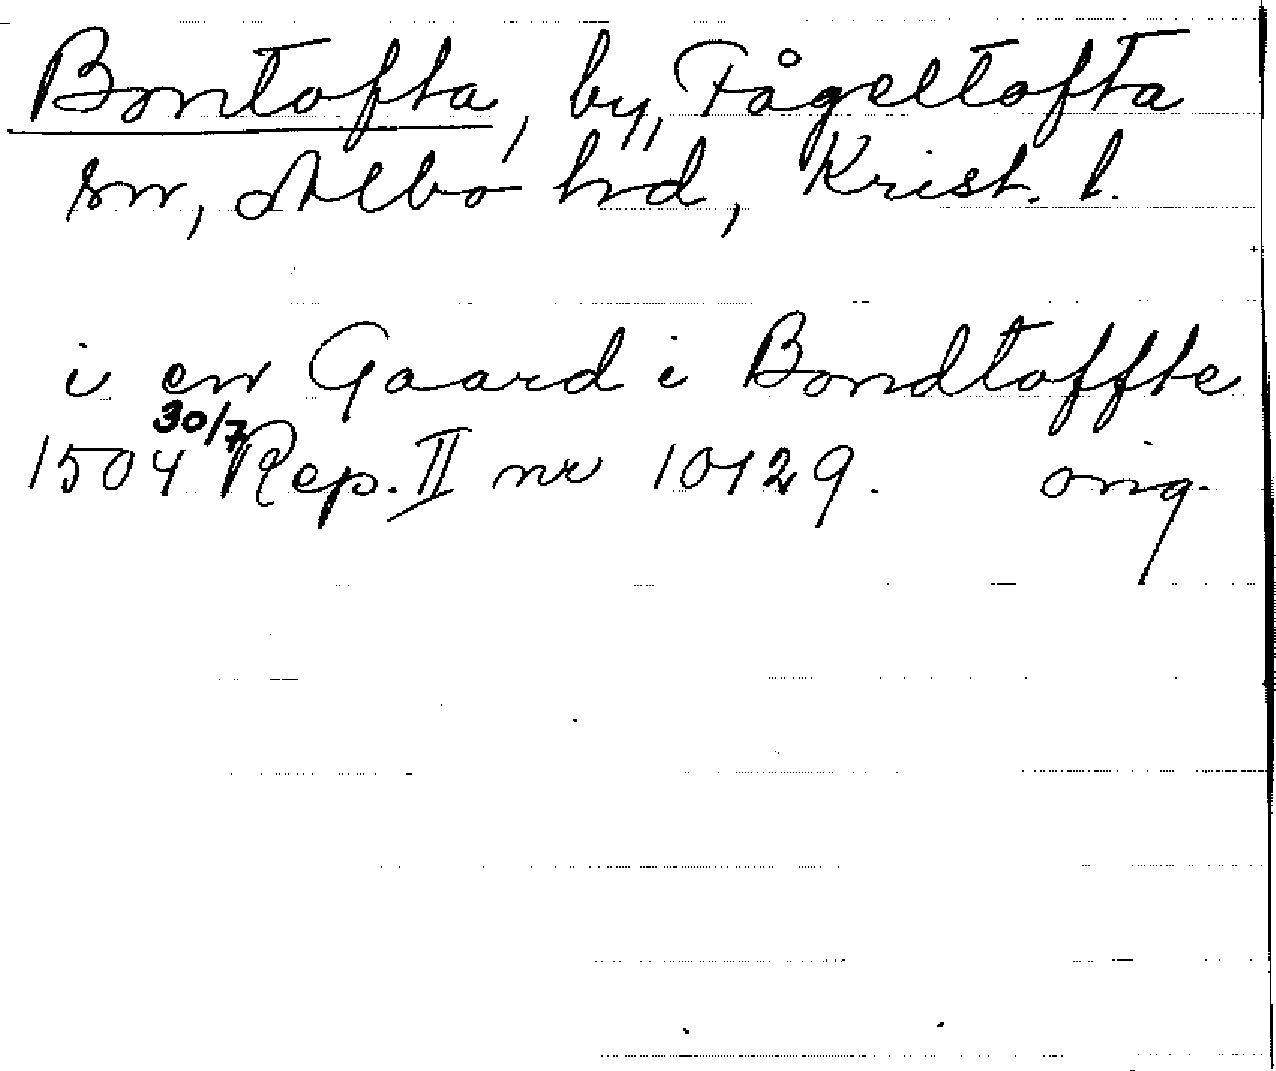 Bontofta, by, Fågeltofta
sn, Albo hd, Krist. l.
i en Gaard i Bondtoffte
1504 30/7 Rep. II nr 10129. orig.